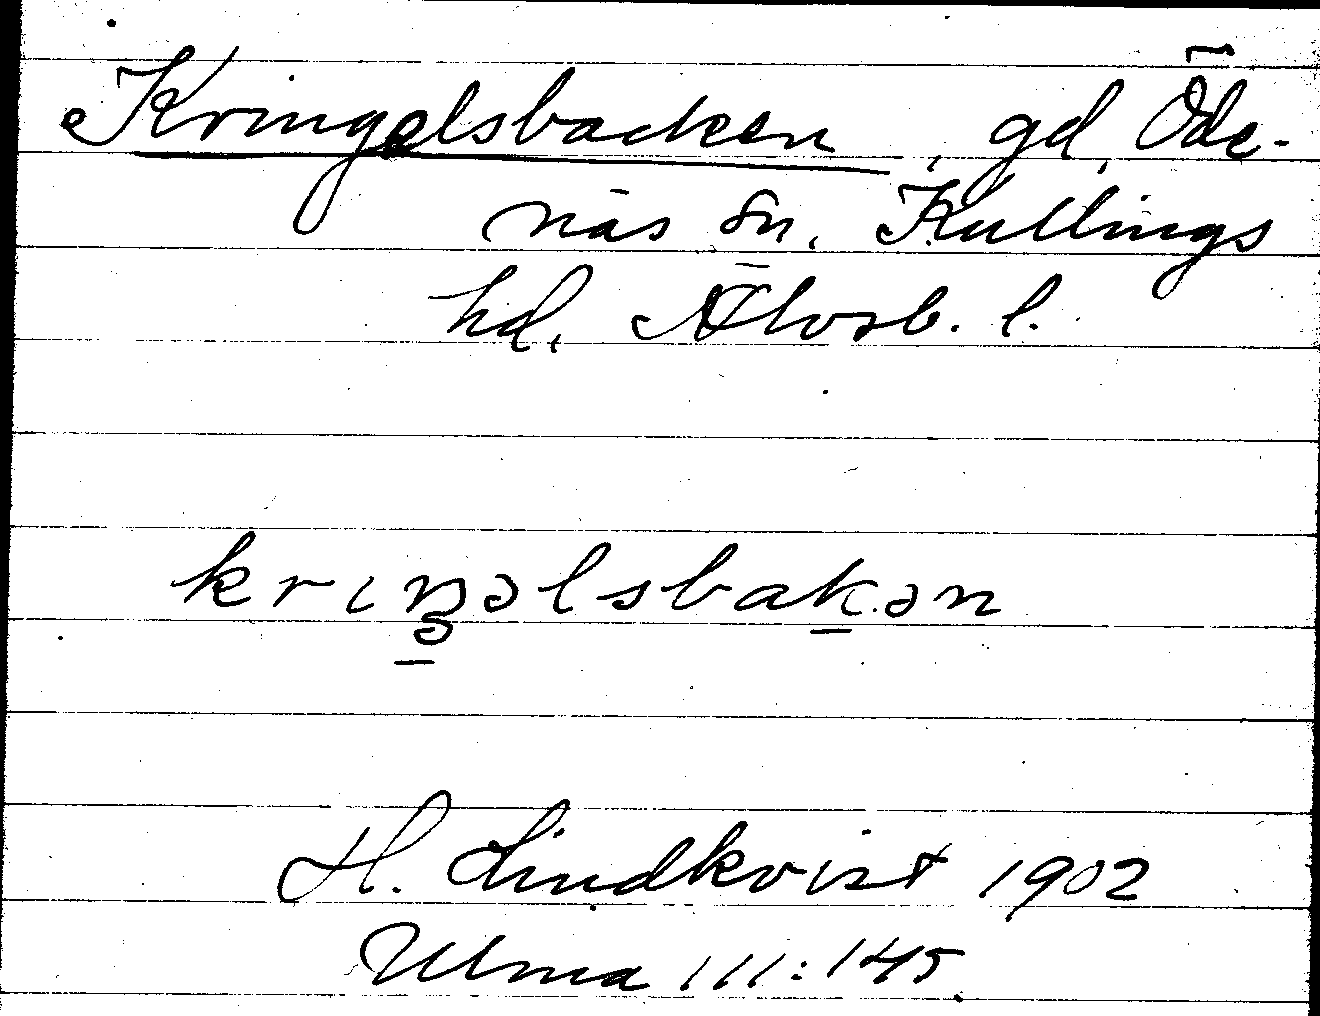 Kringelsbacken, gd, Öde-
näs sn, Kullings
hd, Älvsb. l.
kriŋəlsbakən
H. Lindkvist 1902
Ulma 111:145.